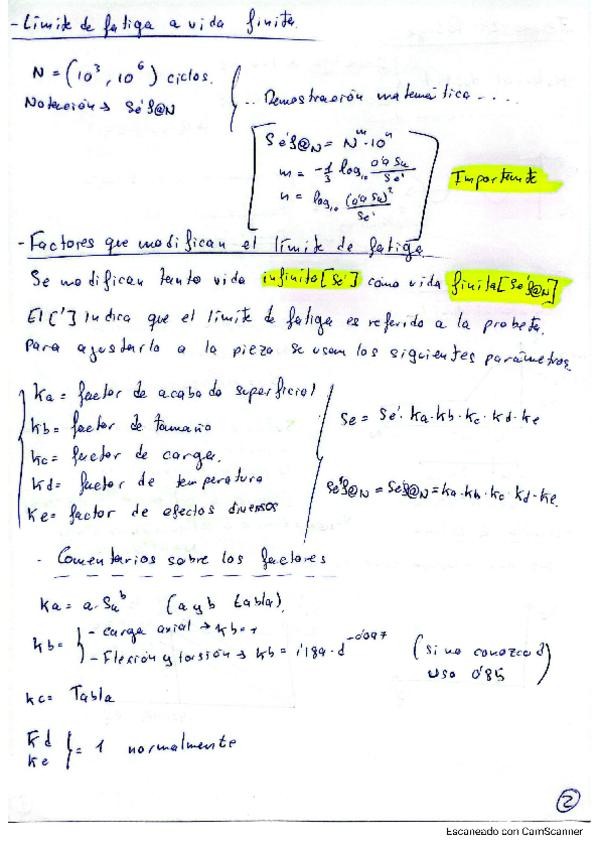 - Límite de fatiga a vida finita.
N = (10³, 10⁶) ciclos.
Notación → Se'f@N
... Demostración matemática ....
Se'f@N = N^m · 10^n
m = -1/3 log₁₀ 0'9 Su / Se'
n = log₁₀ (0'9 Su)² / Se'
Importante
- Factores que modifican el límite de fatiga
Se modifican tanto vida infinita [Se'] como vida finita [Se'f@N]
El ['] Indica que el límite de fatiga es referido a la probeta.
Para ajustarlo a la pieza se usan los siguientes parámetros
Ka = factor de acabado superficial
Kb = factor de tamaño
Kc = factor de carga.
Kd = factor de temperatura
Ke = factor de efectos diversos
Se = Se' · Ka · Kb · Kc · Kd · Ke
Se'f@N = Se'f@N = Ka · Kb · Kc · Kd · Ke.
- Comentarios sobre los factores
Ka = a · Su^b (a y b tabla).
Kb = - carga axial → Kb = 1
- Flexión y torsión → Kb = 1'189 · d^-0'097
(Si no conozco d
uso 0'85)
Kc = Tabla
Kd
Ke } = 1 normalmente
2
Escaneado con CamScanner